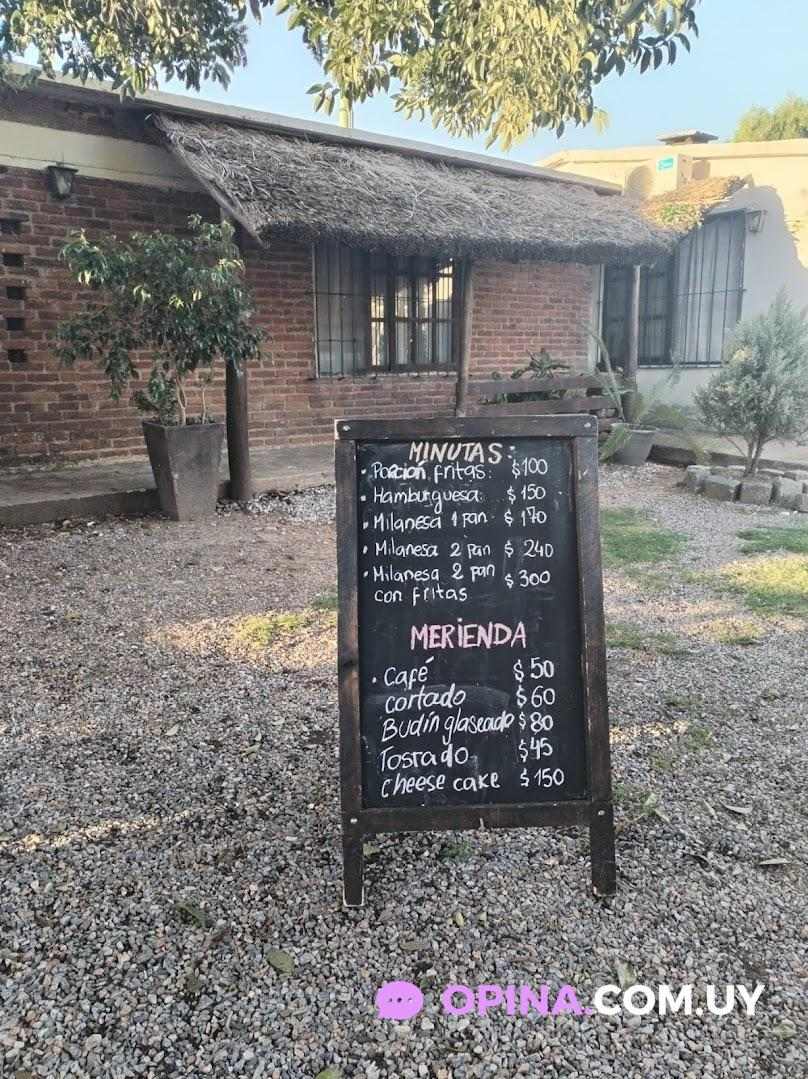 MINUTAS:
• Porción fritas: $100
• Hamburguesa: $150
• Milanesa 1 pan $170
• Milanesa 2 pan $240
• Milanesa 2 pan $300
con fritas
MERIENDA
• Café $50
cortado $60
Budín glaseado $80
Tostado $45
cheese cake $150
OPINA.COM.UY